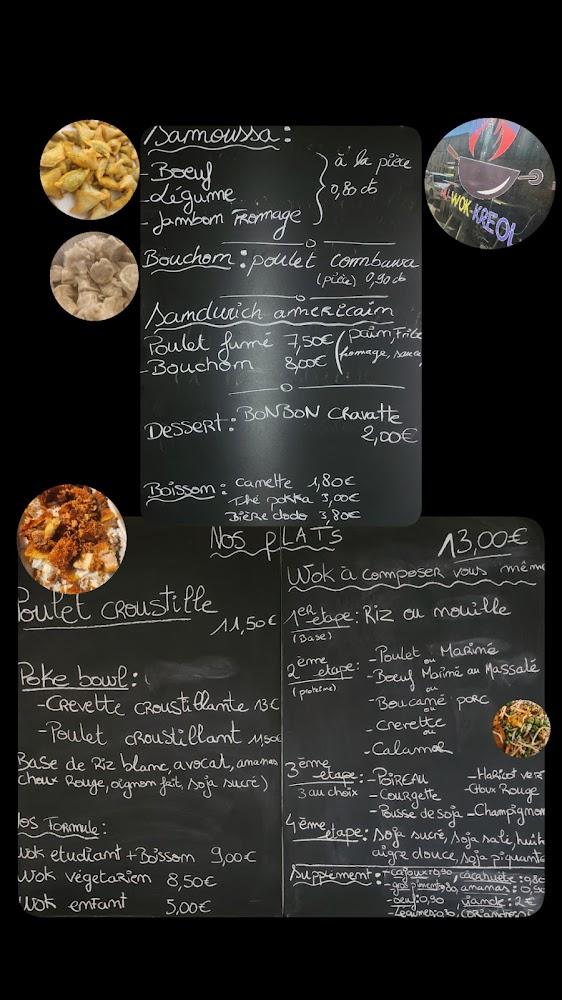 Samoussa:
- Boeuf
- Légume
- Jambon Fromage
à la pièce
0,80 cts
WOK-KREOL
Bouchon: poulet combawa
(pièce) 0,90 cts
Sandwich americain
Poulet fumé 7,50€ (pain, Frite
- Bouchon 8,00€ fromage, sauce
Dessert: BONBON Cravatte
2,00€
Boisson: canette 1,80€
Thé pokka 3,00€
Bière dodo 3,80€
Nos plats
Poulet croustille
11,50€
Poke bowl:
- Crevette croustillante 13€
- Poulet croustillant 11,50€
Base de Riz blanc, avocat, ananas
choux Rouge, oignon frit, soja sucré)
Nos Formule:
Wok etudiant + Boisson 9,00€
Wok végétarien 8,50€
Wok enfant 5,00€
13,00€
Wok à composer vous même
1er etape: Riz ou nouille
(Base)
2ème etape: - Poulet Mariné
(proteine) ou
- Boeuf Mariné au Massalé
ou
- Boucané porc
ou
- Crevette
ou
- Calamar
3ème etape: - Poireau - Haricot vert
3 au choix - Courgette - Choux Rouge
- Pousse de soja - Champignon
4ème etape: soja sucré, soja salé, huit
aigre douce, soja piquante
Supplément: - cajoux: 0,90, cacahuète: 0,80
- gros piment: 0,80, ananas: 0,90
- oeuf: 0,90, viande: 2€
- Légumes: 0,30, coriandre